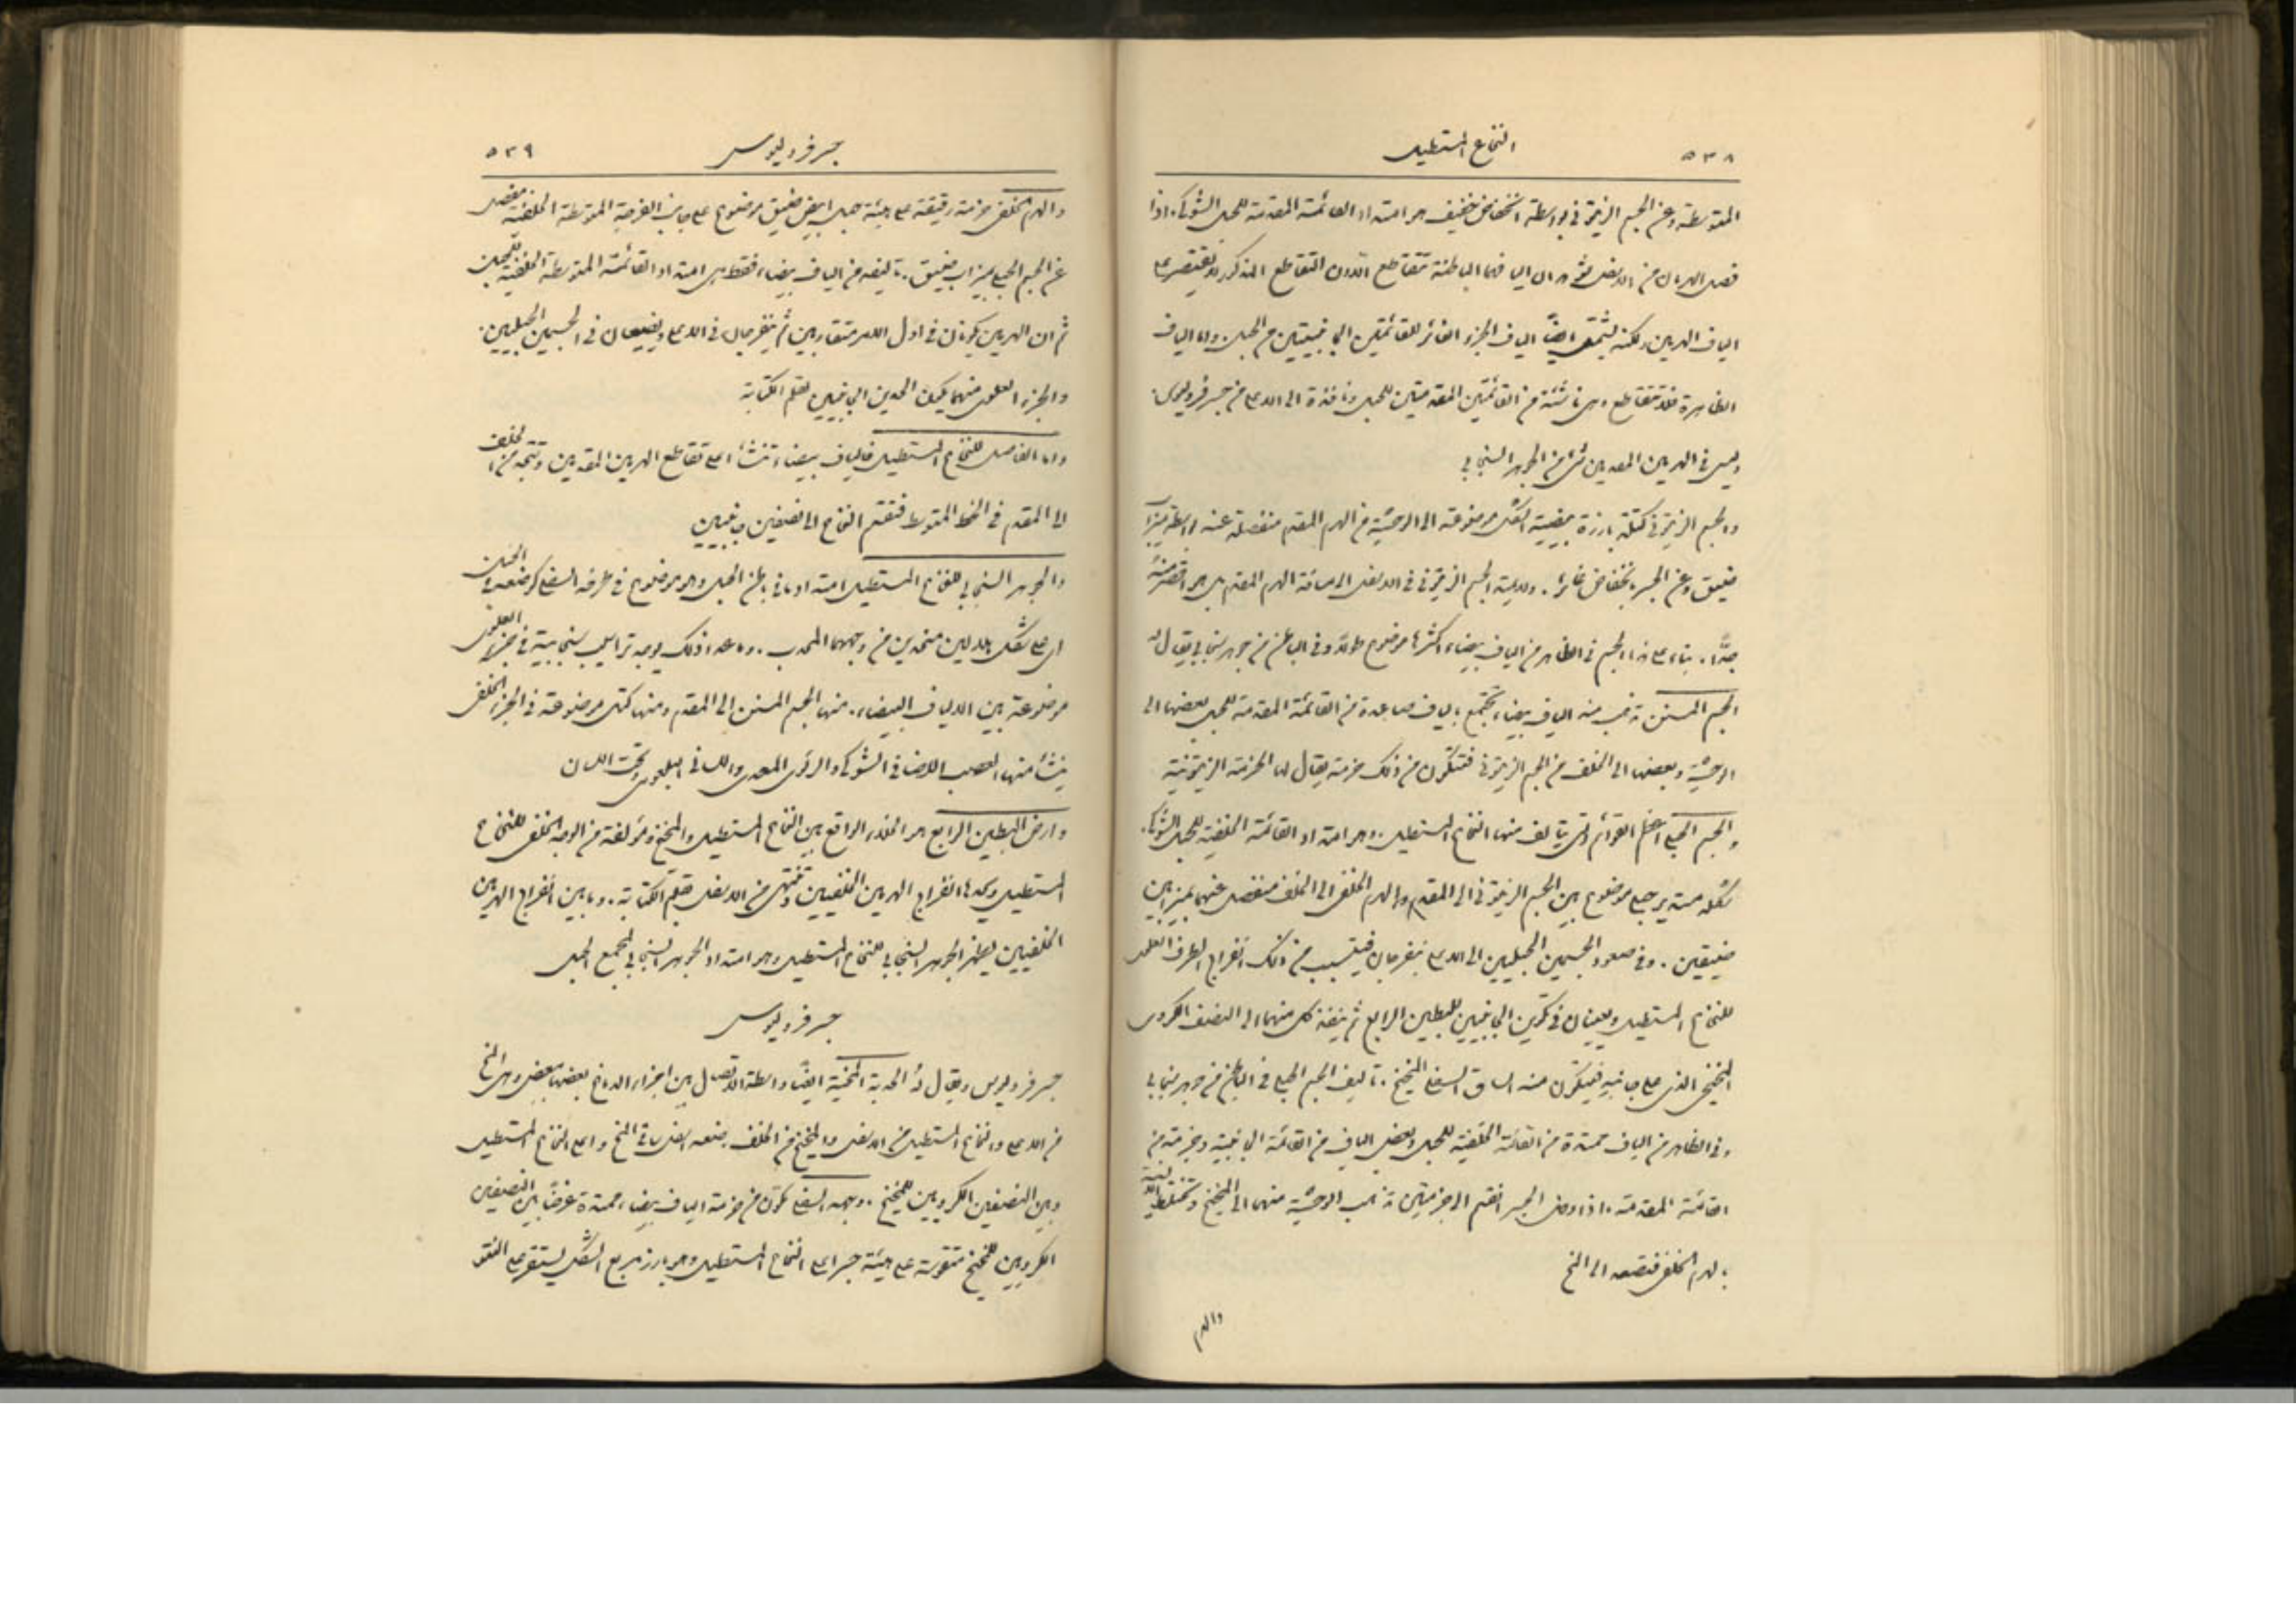 ٥٣٨
النخاع المستطيل
المتوسطة وعن الجسم الزيتوني بواسطة انخفاض خفيف هو امتداد القائمة المقدمة للحبل الشوكي. اذا
فصل الهرمان من الاسفل نحو الياف الباطنة تتقاطع التقاطع المذكور لا يقتصر على
الياف الهرمين ولكنه يشمل ايضًا الياف الجزء الغائر للقائمتين الجانبيتين من الحبل واما الياف
الظاهرة فلا تتقاطع وهي ناشئة من القائمتين المقدمتين للحبل ونافذة الى الاعلى من جسر فروليوس.
وليس في الهرمين المقدمين شيء من الجوهر السنجابي
والجسم الزيتوني كتلة بارزة بيضية الشكل موضوعة الى الوحشية من الهرم المقدم منفصلة عنه بواسطة ميزاب
ضيق وعن الجسر بانخفاض غائر. ولا يمتد الجسم الزيتوني في الاسفل الى مسافة الهرم المقدم بل هو اقصر منه
جدًّا. بناء على هذا الجسم في الظاهر من الياف بيضاء اكثرها موضوع طولًا وفي الباطن من جوهر سنجابي يقال له
الجسم المسنن تذهب منه الياف بيضاء تجتمع بالياف صاعدة من القائمة المقدمة للحبل بعضها الى
الوحشية وبعضها الى الخلف من الجسم الزيتوني فتتكون من ذلك حزمة يقال لها الحزمة الزيتونية
والجسم الحبلي اعظم القوائم التي يتالف منها النخاع المستطيل. وهو امتداد القائمة الخلفية للحبل الشوكي.
شكله مستدير حبلي موضوع بين الجسم الزيتوني الى المقدم والهرم الخلفي الى الخلف منفصل عنهما بميزابين
ضيقين. وفي صعود الجسمين الحبليين الى الاعلى ينفرجان فيتسبب من ذلك انفراج الطرف العلوي
للنخاع المستطيل ويعينان في تكوين الجانبين للبطين الرابع ثم ينفذ كل منهما الى النصف الكروي
المخيخي الذي على جانبه فيتكون منه الساق السفلي للمخيخ. تاليف الجسم الحبلي في الباطن من جوهر سنجابي
وفي الظاهر من الياف ممتدة من القائمة الخلفية للحبل وبعض الياف من القائمة الجانبية وحزمة من
القائمة المقدمة. اذا وصل الجسر انقسم الى حزمتين تذهب الوحشية منهما الى المخيخ وتختلط الانسية
بالهرم الخلفي فتصعد الى المخ
والهرم
٥٣٩
جسر فروليوس
والهرم الخلفي حزمة رقيقة على هيئة حبل ابيض ضيق موضوع على جانب الفرجة المتوسطة الخلفية منفصل
عن الجسم الحبلي بميزاب ضيق. تاليفه من الياف بيضاء فقط هي امتداد القائمة المتوسطة الخلفية للحبل
ثم ان الهرمين يكونان في اول الامر متقاربين ثم ينفرجان في الاعلى ويضيعان في الجسمين الحبليين.
والجزء العلوي منهما يكون الحدين الجانبيين لقلم الكتابة
واما الفاصل للنخاع المستطيل فالياف بيضاء تنشأ اعلى تقاطع الهرمين المقدمين وتتجه من الخلف
الى المقدم في الخط المتوسط فتقسم النخاع الى نصفين جانبيين
والجوهر السنجابي للنخاع المستطيل امتداد ما في باطن الحبل وهو موضوع في طرفه السفلي كوضعه في الحبل
اي على شكل هلالين متحدين من وجههما المحدب. وما عدا ذلك يوجد تراكيب سنجابية في جزئه العلوي
موضوعة بين الالياف البيضاء. منها الجسم المسنن الى المقدم ومنها كتل موضوعة في الجزء الخلفي
ينشأ منها العصب الاضافي الشوكي والرئوي المعدي واللساني البلعومي وتحت اللسان
وارض البطين الرابع هو الخلاء الواقع بين النخاع المستطيل والمخيخ مؤلفة من الوجه الخلفي للنخاع
المستطيل ويحدها انفراج الهرمين الخلفيين وتنتهي من الاسفل بقلم الكتابة. وما بين انفراج الهرمين
الخلفيين يظهر الجوهر السنجابي للنخاع المستطيل وهو امتداد الجوهر السنجابي لمجمع الحبل
جسر فروليوس
جسر فروليوس ويقال له الحدبة المخية ايضًا واسطة الاتصال بين اجزاء الدماغ بعضها ببعض وهي المخ
من الاعلى والنخاع المستطيل من الاسفل والمخيخ من الخلف. وضعه اسفل ساقي المخ واعلى النخاع المستطيل
وبين النصفين الكرويين للمخيخ. وجهه السفلي مكون من حزمة الياف بيضاء ممتدة عرضًا بين النصفين
الكرويين للمخيخ متقوسة على هيئة جسر اعلى النخاع المستطيل وهو بارز مربع الشكل يستقر على النتو